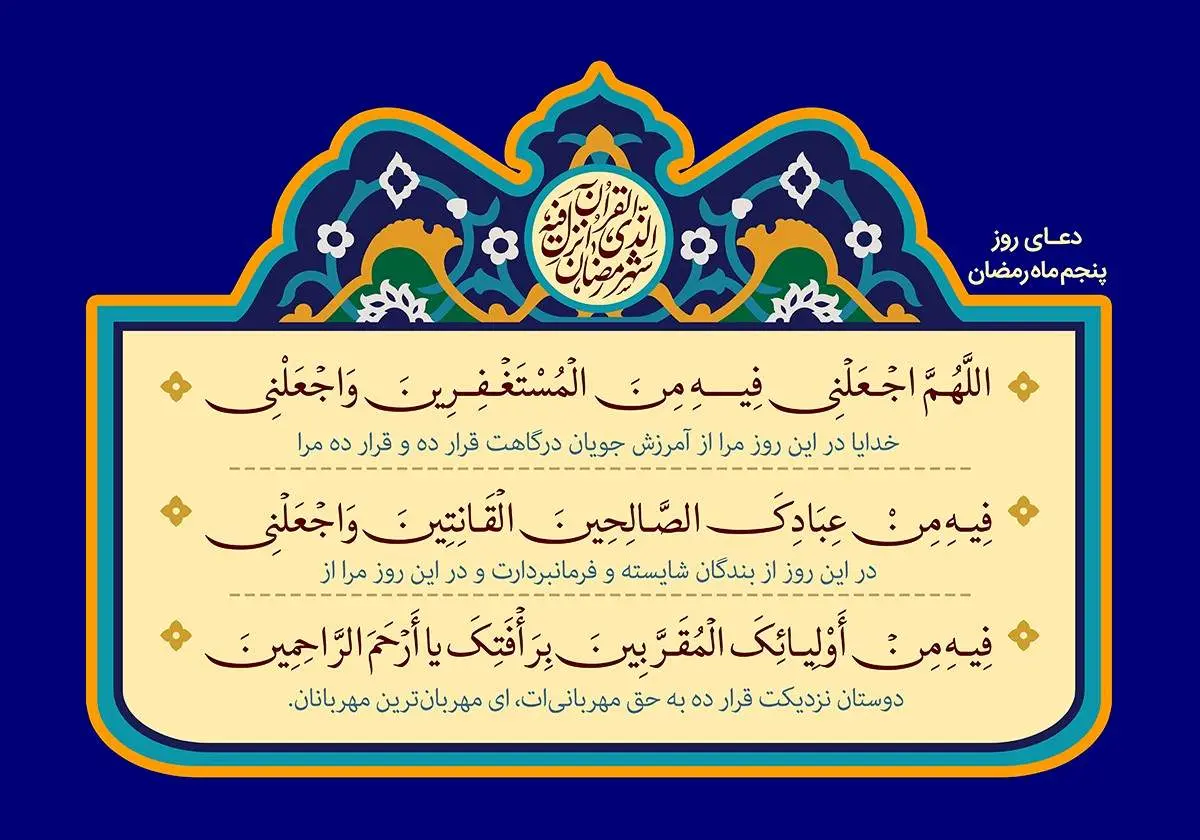 شهر رمضان الذی انزل فیه القرآن
دعـای روز
پنجم ماه رمضان
اللَّهُمَّ اجْعَلْنِی فِیهِ مِنَ الْمُسْتَغْفِرِینَ وَاجْعَلْنِی
خدایا در این روز مرا از آمرزش جویان درگاهت قرار ده و قرار ده مرا
فِیهِ مِنْ عِبَادِکَ الصَّالِحِینَ الْقَانِتِینَ وَاجْعَلْنِی
در این روز از بندگان شایسته و فرمانبردارت و در این روز مرا از
فِیهِ مِنْ أَوْلِیَائِکَ الْمُقَرَّبِینَ بِرَأْفَتِکَ یا أَرْحَمَ الرَّاحِمِینَ
دوستان نزدیکت قرار ده به حق مهربانی‌ات، ای مهربان‌ترین مهربانان.